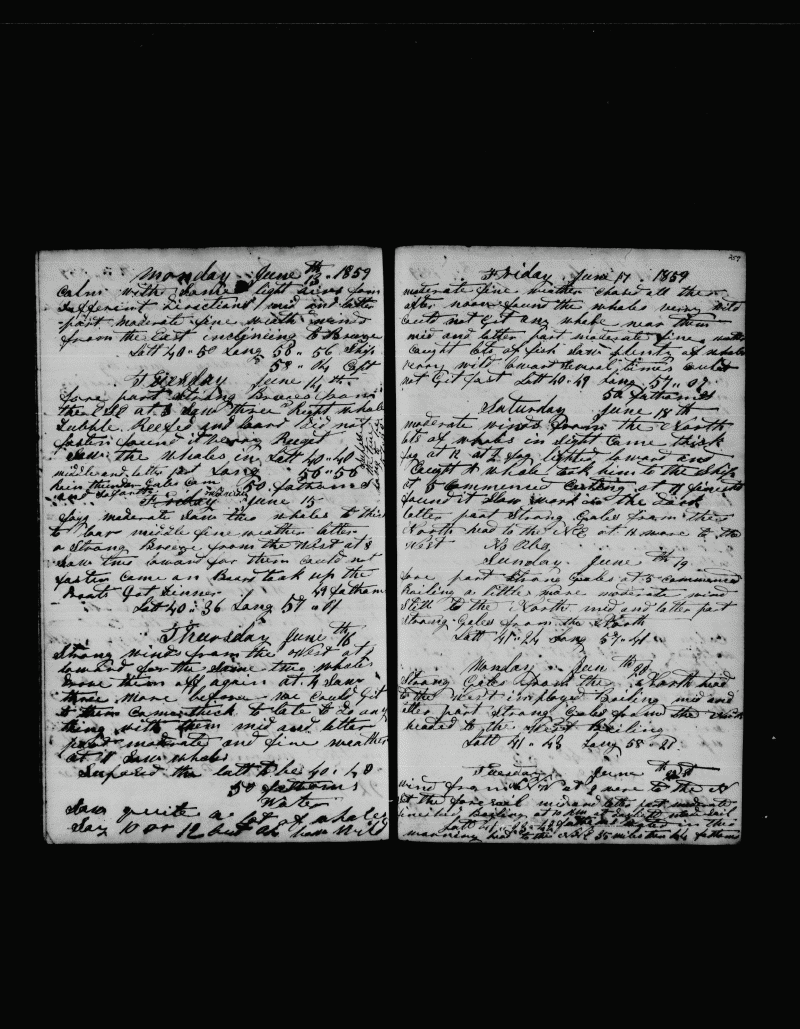 Monday June 13th 1859
Calm with some light airs from
Different Directions mid and latter
part moderate fine weath winds
from the East inclining to Breeze
Latt 40 " 50 Long 58 " 56 Ship
58 " 04 Capt
Tuesday June 14th
fore part strong Breeze from
the at 3 saw three Right whale
Dubble Reefed and did not
fasten found it very Ruged
Saw the whales in Latt 40 " 40
middle and latter part Long 58 " 50
thunder Gales 50 fathoms
June 15
fogy moderate saw two whales to thick
to low middle fine weather latter
a strong Breeze from the West at 8
saw two loward for them could not
fasten came on Board took up the
Boats Got Dinner 49 fathom
Latt 40 " 36 Long 57 "
Thursday June 16th
Strong winds from the West at 1
loward for the same two whales
Drove them off again at 4 saw
three more before we could Git
to them came thick to late to do any
thing with them mid and latter
part moderate and fine weather
at 11 saw whales
Suposed the latt to be 40 " 40
50 fathoms
Water
Saw quite a lot of whales
Say 10 or 12 but all wild
259
Friday June 17 1859
moderate fine weather chased all the
after noon found the whales very wild
Could not Got any whale near them
mid and latter part moderate fine weather
Caught lots of fish saw plenty of whales
verry wild loward several times could
not Git fast Latt 40 " 49 Long 57 " 07
52 fathoms
Saturday June 18th
moderate winds from the North
lots of whales in sight came thick
fog at 12 at 2 fog lighted loward and
Caught 1 whale took him to the Ship
at 5 Commenced Cutting at 11 finished
found it slow work in the Dark
latter part strong Gales from the
North head to the NE at 12 wore to the
West No Obs
Sunday June 19th
fore part strong Gales at 5 commenced
Boiling a little more moderate wind
Still to the North mid and latter part
strong Gales from the North
Latt 41 " 24 Long 57 " 41
Monday June 20th
Strong Gales from the North head
to the West imployed Boiling mid and
latter part strong Gales from the North
headed to the West Boiling
Latt 41 " 43 Long 58 " 28
Tuesday June 21st
wind from at 8 wore to the N
mid and latter part moderate
Boiling at 10 at Daylight made Sail
Latt 41 " fathoms Water in this
morning head to the 35 miles then fathoms